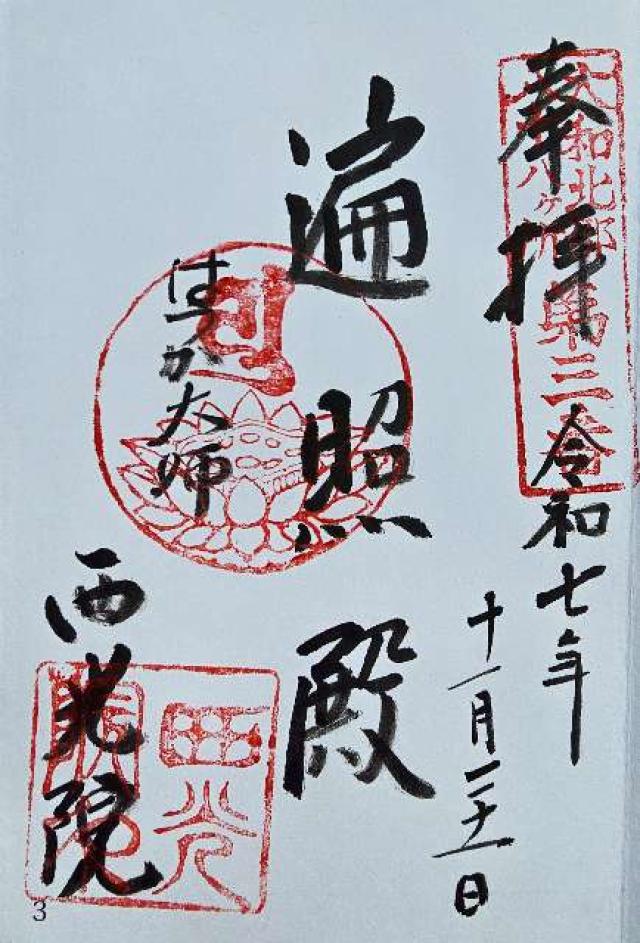 奉拝
大和北部
八十八ヶ所
第三番
令和七年
十一月二十一日
遍照殿
はだか大師
西光院
西光
3